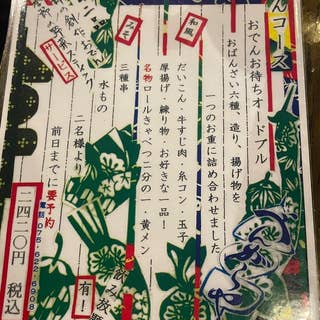 んコース
おでんお待ちオードブル
おばんざい六種、造り、揚げ物を
一つのお重に詰め合わせました
和風
だいこん・牛すじ肉・糸コン・玉子
厚揚げ・練り物・お好きな一品！
名物ロールきゃべつ二分の一・黄メン
みそ
三種串
水もの
二名様より
前日までに要予約
電話 075-622-6908
二四二〇円 税込
サービス
野菜スティック
飲み放題
有！